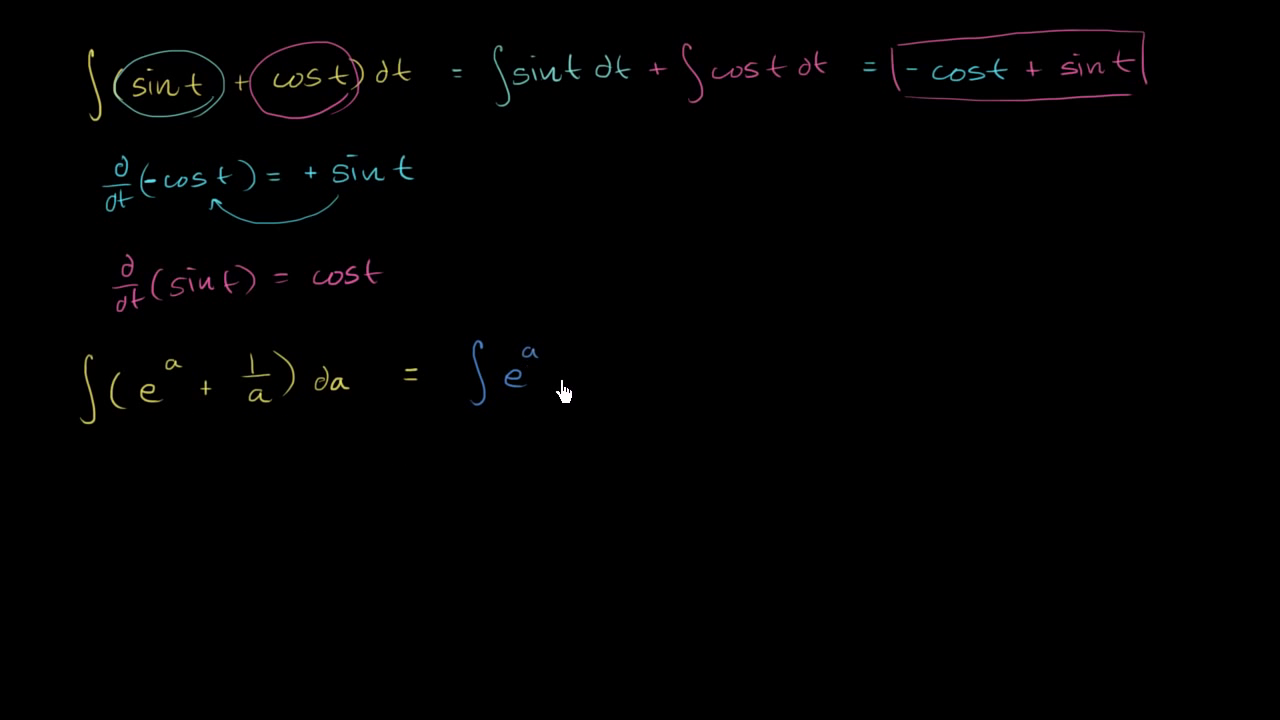 ∫(sin t + cos t) dt = ∫sin t dt + ∫cos t dt = -cos t + sin t
d/dt(-cos t) = + sin t
d/dt(sin t) = cos t
∫(e^a + 1/a) da = ∫e^a